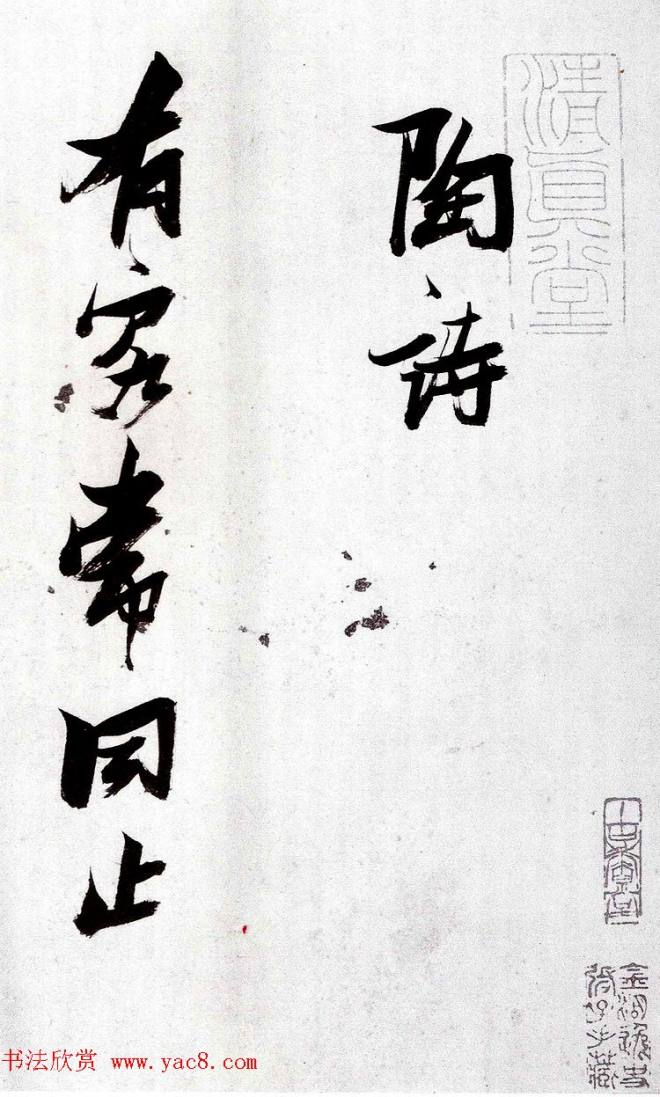 陶诗
有客常同止
清真堂
书法欣赏 www.yac8.com